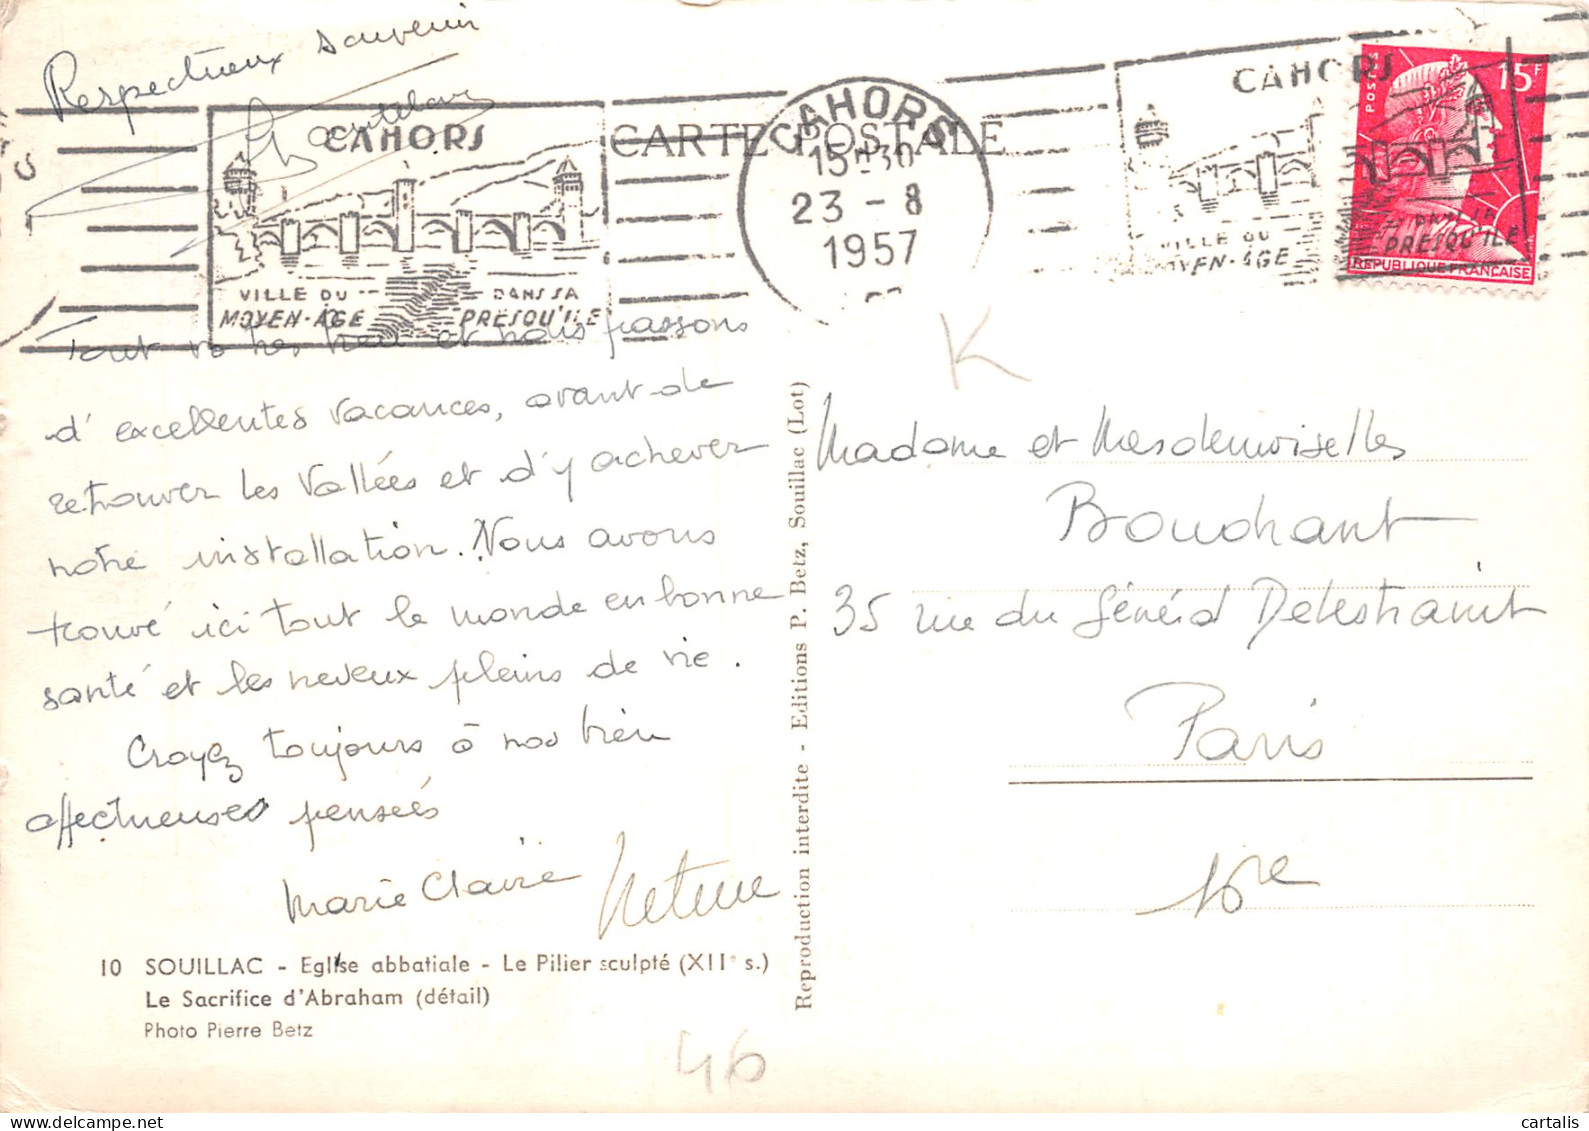 Respectueux souvenir
CAHORS
VILLE DU MOYEN-AGE
DANS SA PRESQU'ILE
CARTE POSTALE
CAHORS
15H30
23 - 8
1957
CAHORS
VILLE DU MOYEN-AGE
DANS SA PRESQU'ILE
POSTES
15F
REPUBLIQUE FRANCAISE
K
Tout va très bien et nous passons
d'excellentes vacances, avant de
retrouver les Vallées et d'y achever
notre installation. Nous avons
trouvé ici tout le monde en bonne
santé et les neveux pleins de vie.
Croyez toujours à nos bien
affectueuses pensées
Marie Claire
10 SOUILLAC - Eglise abbatiale - Le Pilier sculpté (XIIe s.)
Le Sacrifice d'Abraham (détail)
Photo Pierre Betz
Reproduction interdite - Editions P. Betz, Souillac (Lot)
Madame et Mesdemoiselles
Bouchant
35 rue du Général Delestraint
Paris
16e
46
cartalis